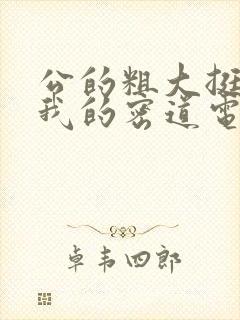 公的粗大挺
我的密道電
卓韦四郎